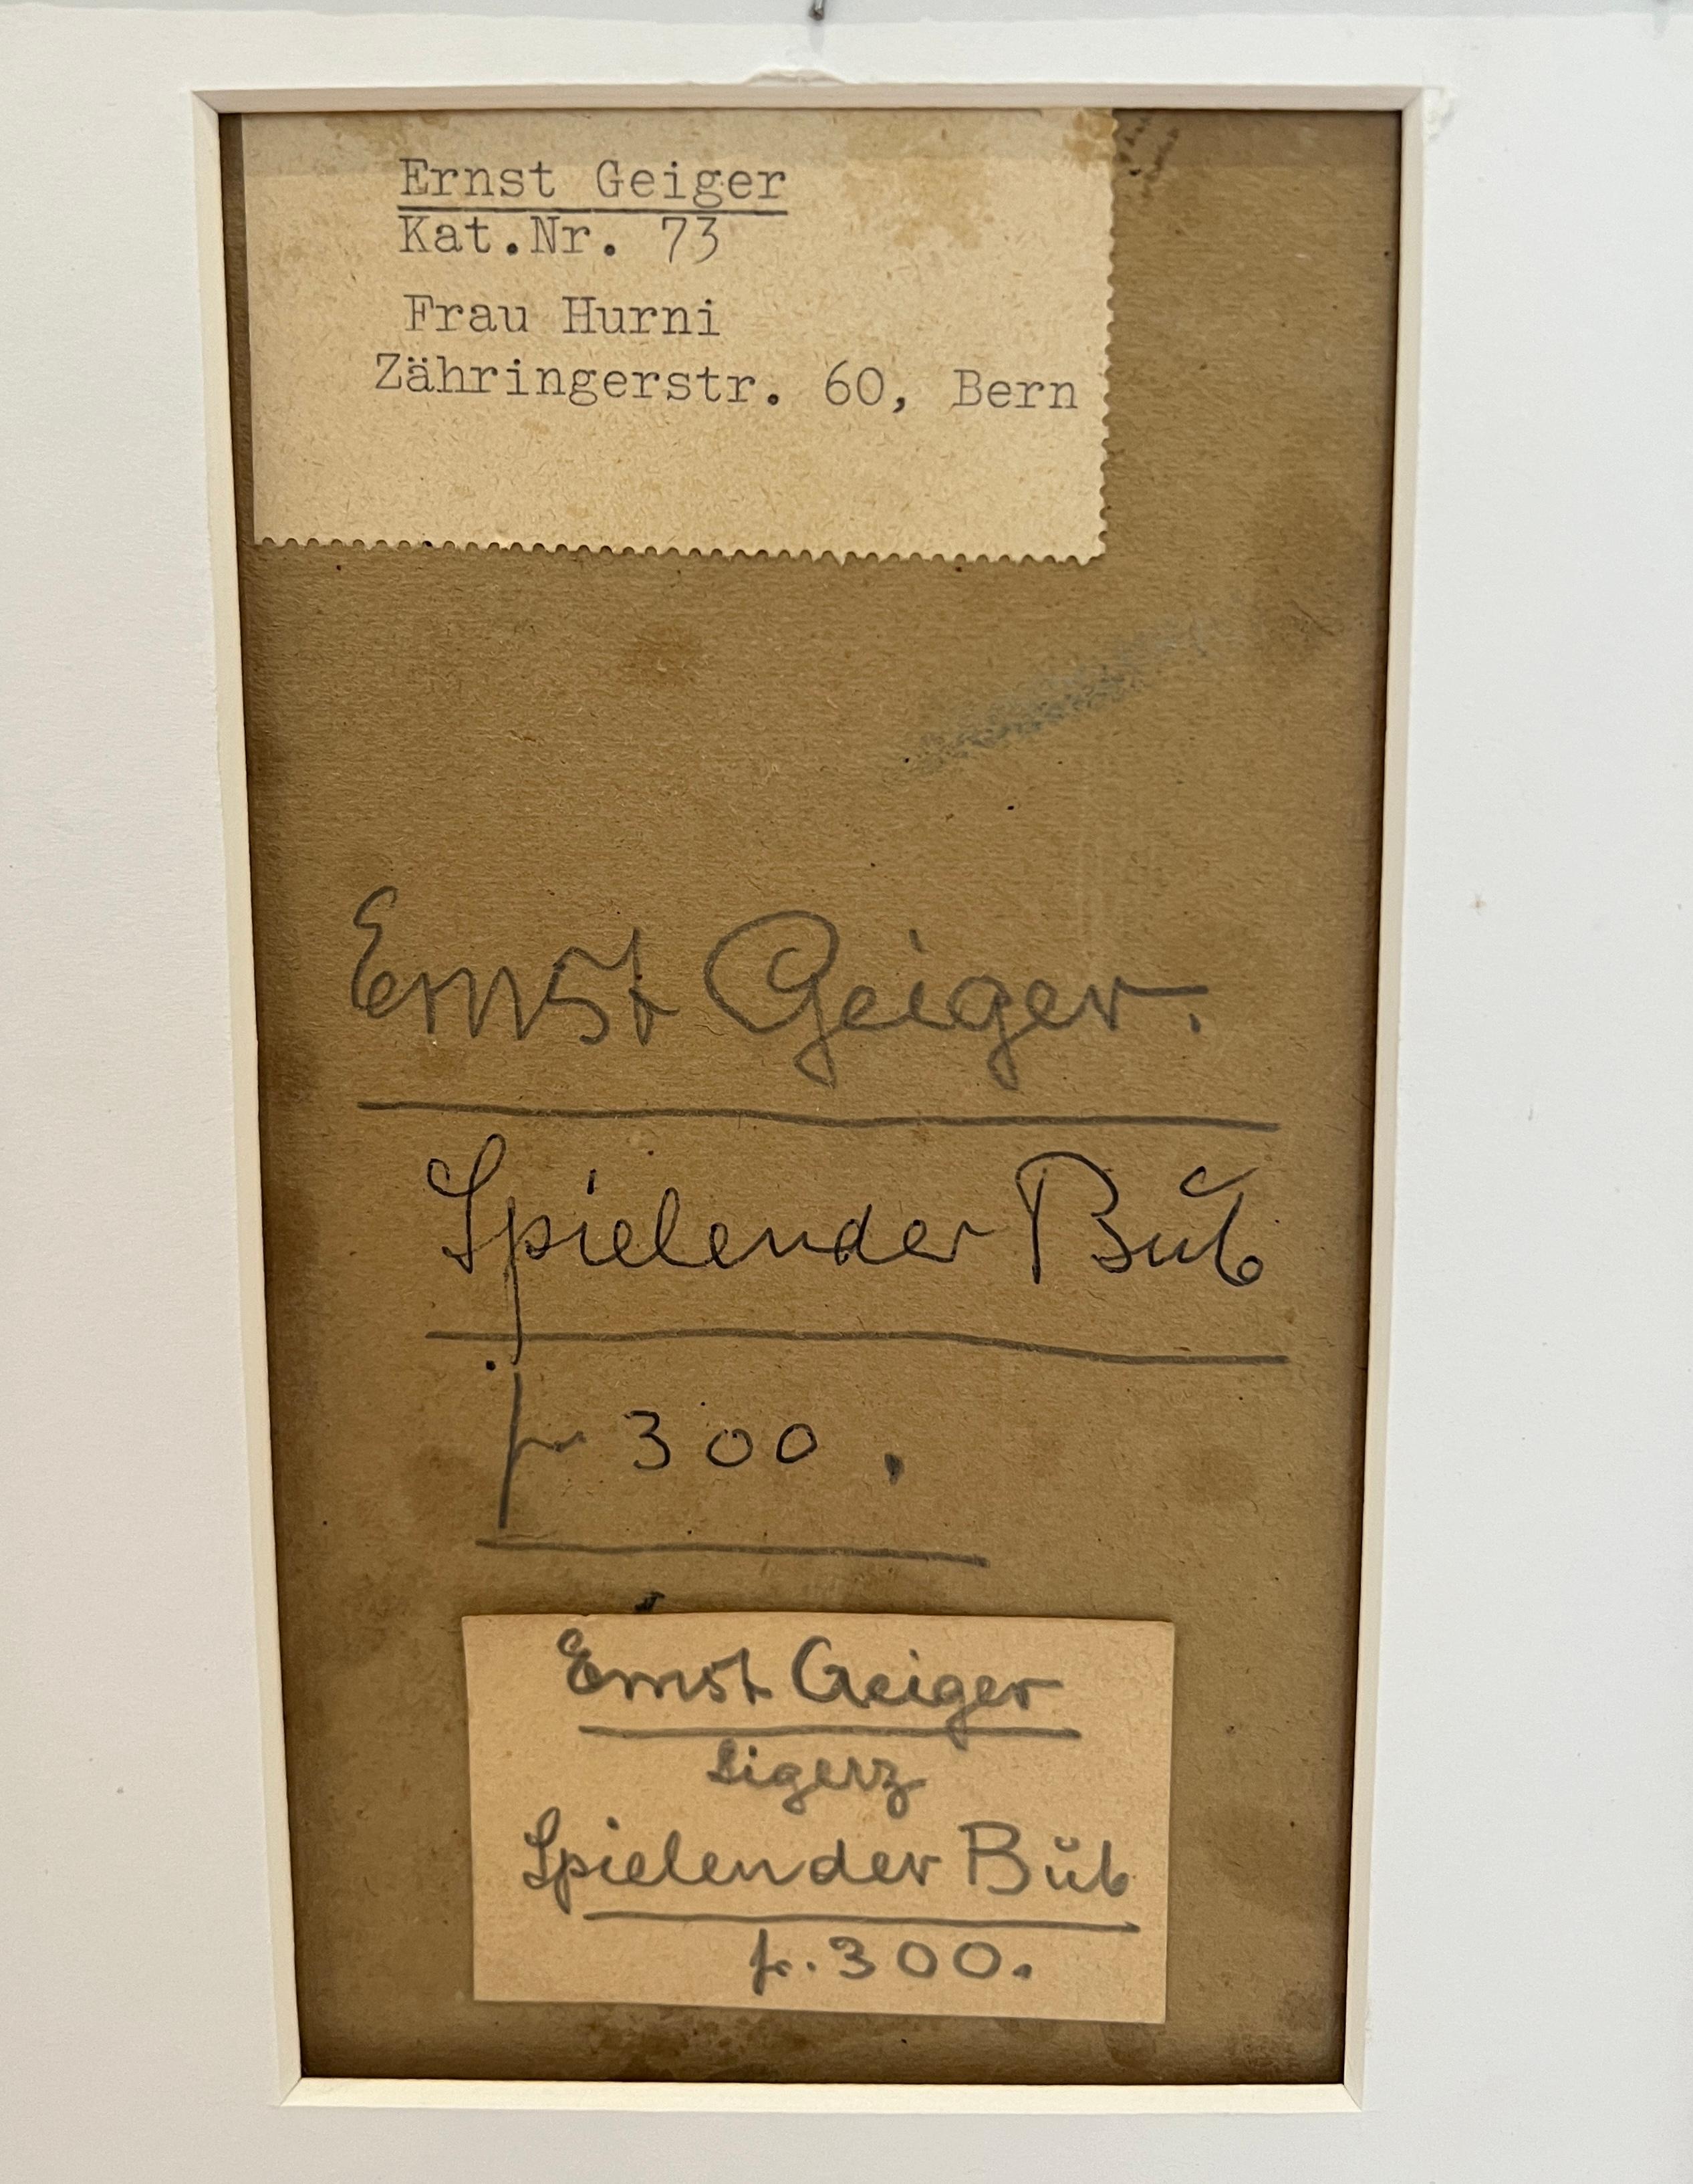 Ernst Geiger
Kat.Nr. 73
Frau Hurni
Zähringerstr. 60, Bern
Ernst Geiger.
Spielender Bub
fr 300.
Ernst Geiger
Ligerz
Spielender Bub
fr. 300.